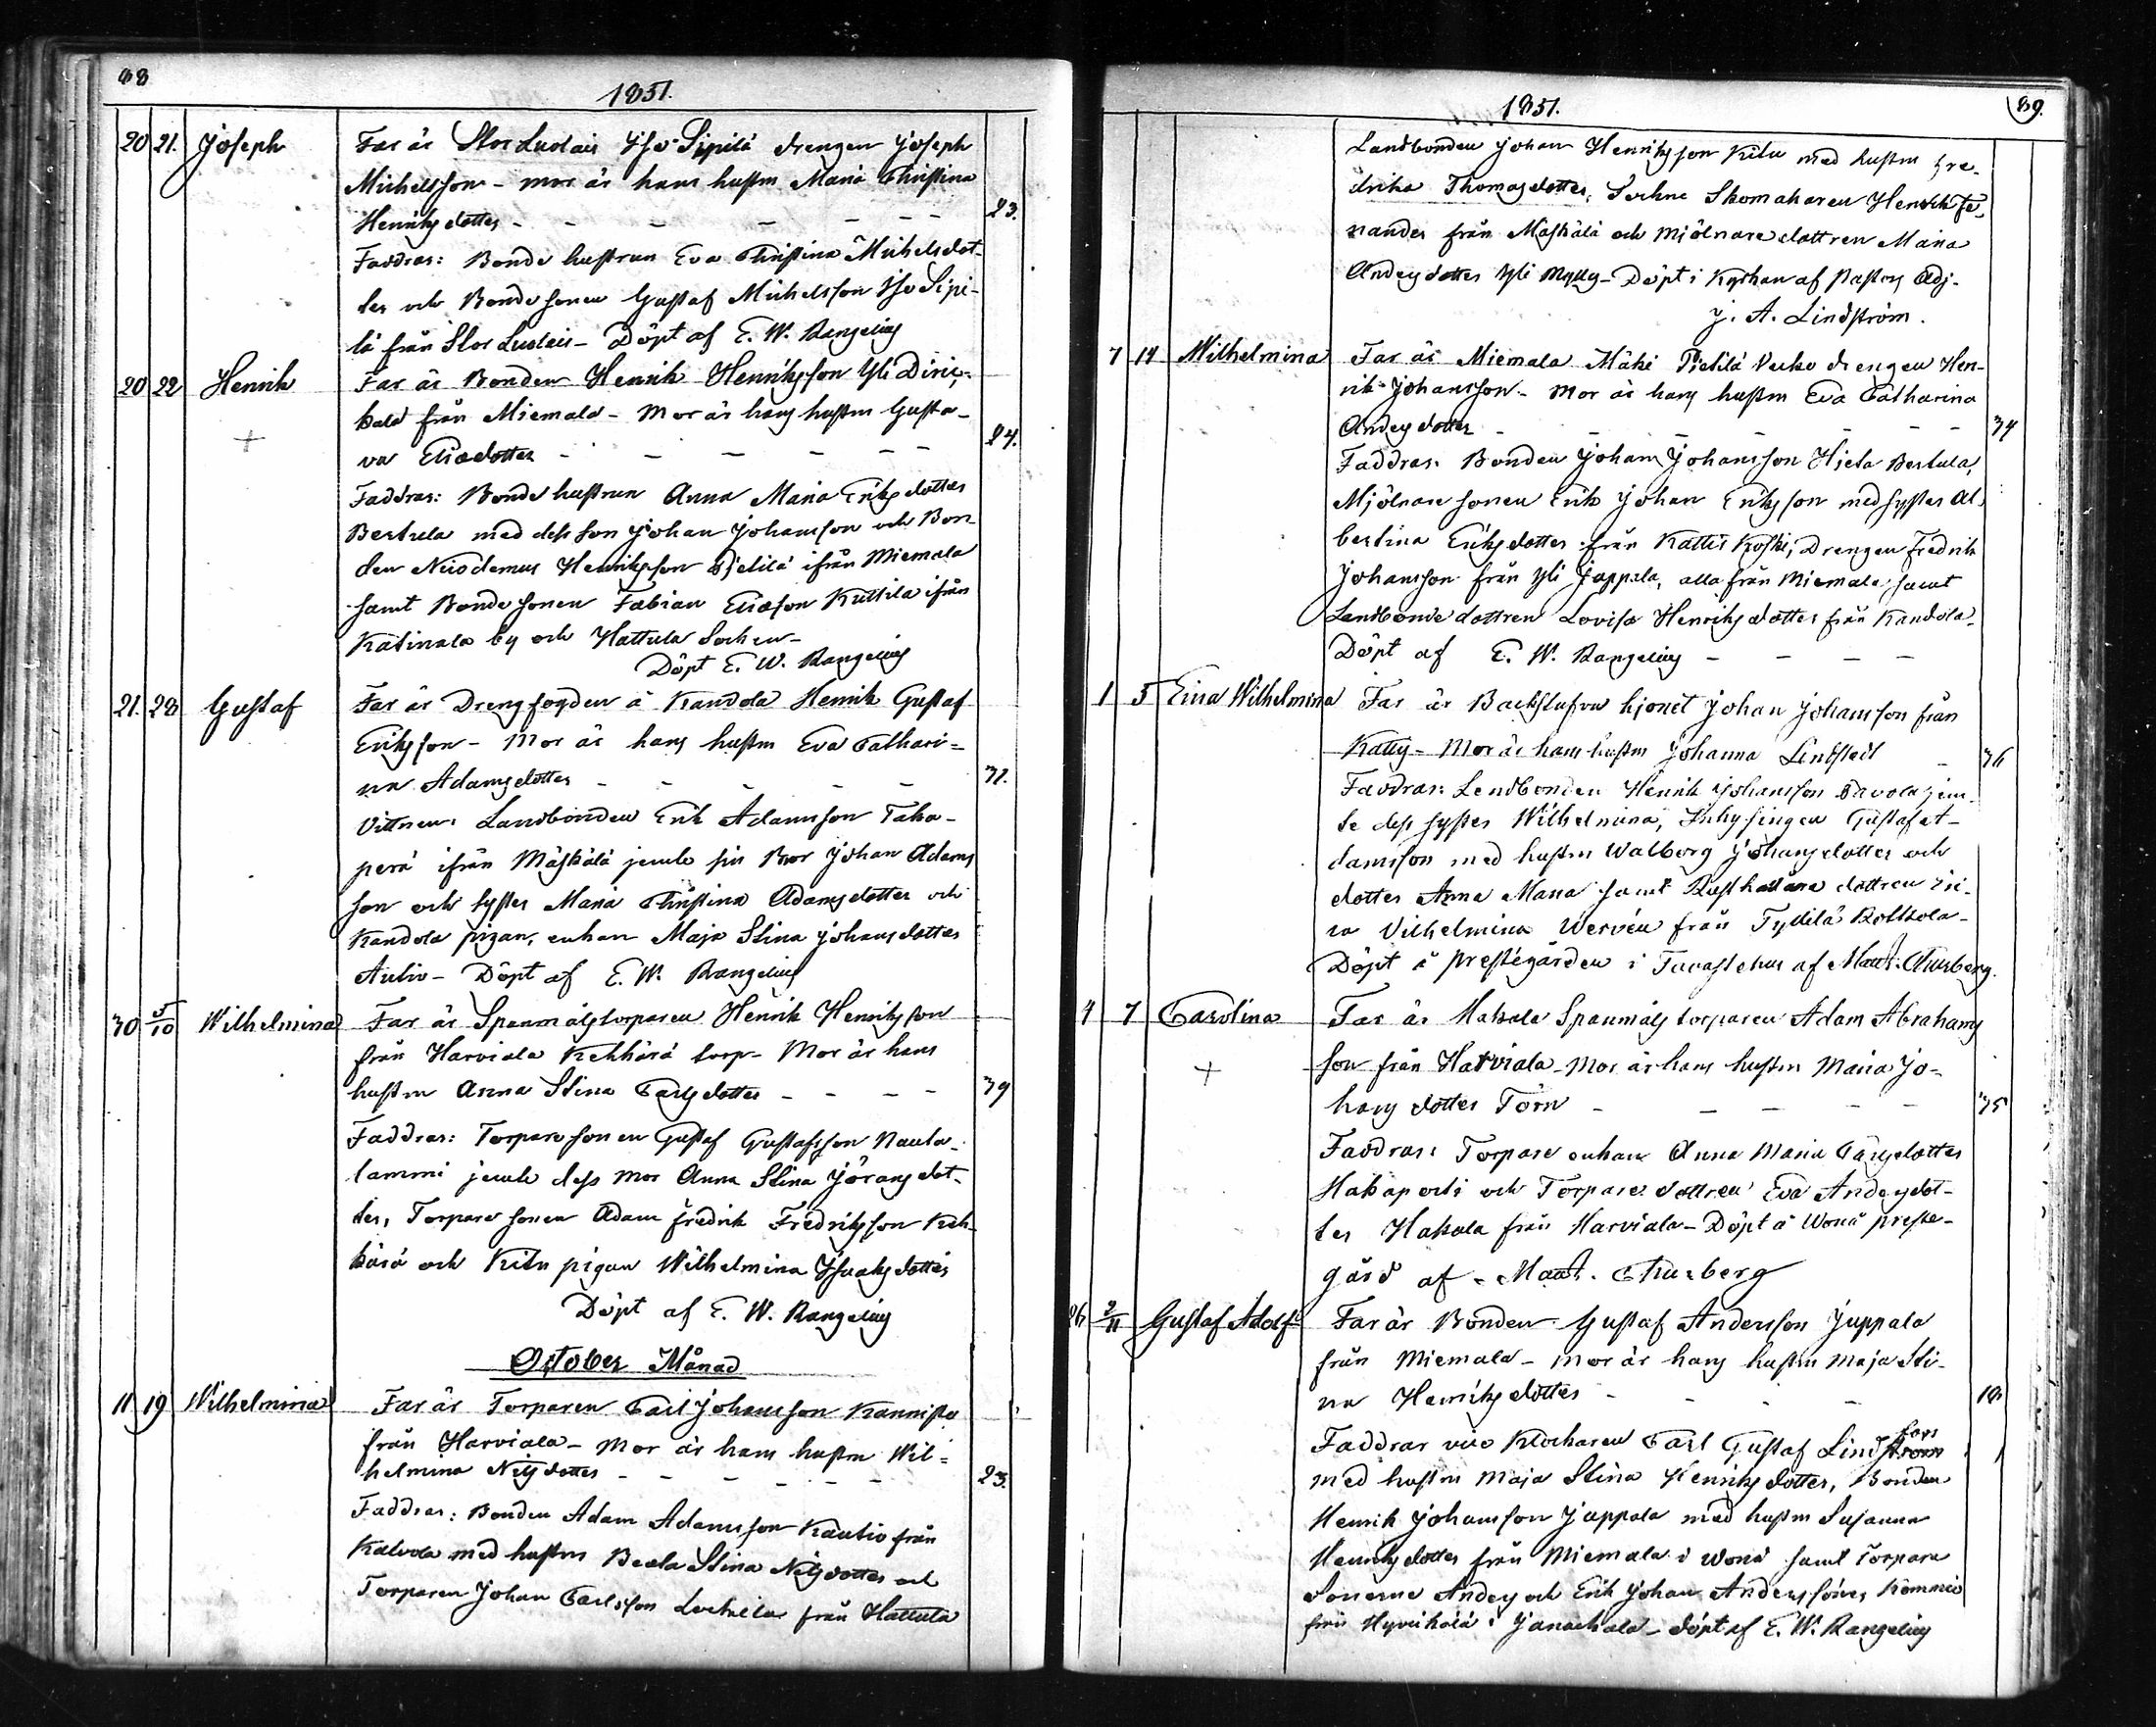 88
1851.
20 21. Joseph Far är Stor Luolais Iso Sipilä drengen Joseph
Michelsson - mor är hans hustru Maria Christina
Henriksdotter - - - - - - 23.
Faddrar: Bonde hustrun Eva Christina Michelsdot-
ter och Bondesonen Gustaf Michelsson Iso Sipi-
lä från Stor Luolais - Döpt af E. W. Rangelius
20 22 Henrik Far är Bonden Henrik Henriksson Yli
kala från Miemala - Mor är hans hustru Gusta-
+ va Eliædotter - - - - - - 24.
Faddrar: Bonde hustrun Anna Maria Eriksdotter
Bertula med dess son Johan Johansson och Bon-
den Nicodemus Henriksson Pietilä ifrån Miemala
samt Bondesonen Fabian Eliæson Kuttila ifrån
Katinala by och Hattula Socken -
Döpt E. W. Rangelius
21. 28 Gustaf Far är Drengfogden å Kandola Henrik Gustaf
Eriksson - Mor är hans hustru Eva Cathari=
na Adamsdotter - - - - - 31.
Vittnen: Landbonden Erik Adamsson Taka-
perä ifrån Mäskälä jemte sin Bror Johan Adams
son och syster Maria Christina Adamsdotter och
Kandola pigan, enkan Maja Stina Johansdotter
Aulio - Döpt af E. W. Rangelius
30 5/10 Wilhelmina Far är Spanmålstorparen Henrik Henriksson
från Harviala Kehkärä torp - Mor är hans
hustru Anna Stina Carlsdotter - - - - 39
Faddrar: Torparesonen Gustaf Gustafsson Nauta-
lammi jemte dess mor Anna Stina Jöransdot-
ter, Torpare sonen Adam Fredrik Fredriksson Keh-
kärä och Kitu pigan Wilhelmina Isaaksdotter
Döpt af E. W. Rangelius
October Månad
11 19 Wilhelmina Far är Torparen Carl Johansson Kannisto
från Harviala - Mor är hans hustru Wil=
helmina Nilsdotter - - - - - - 23.
Faddrar: Bonden Adam Adamsson Kautio från
Kalvola med hustru Beata Stina Nilsdotter och
Torparen Johan Carlsson från Hattula
1851.
89.
Landbonden Johan Henriksson Kitu med hustru Fre-
drika Thomasdotter, Sockne Skomakaren Henrik Fe-
nander från Mäskälä och Mjölnaredottren Maria
Andersdotter Yli Mylly - Döpt i Kyrkan af Pastors Adj.
J. A. Lindström.
7 14 Wilhelmina Far är Miemala Mäki Pietilä Verho drengen Hen-
rik Johansson - Mor är hans hustru Eva Catharina
Andersdotter - - - - - - - 34
Faddrar: Bonden Johan Johansson Hieta Bertula,
Mjölnare sonen Erik Johan Eriksson med syster Al-
bertina Eriksdotter från Kattis Koski, Drengen Fredrik
Johansson från Yli Juppala, alla från Miemala, samt
Landbonde dottren Lovisa Henriksdotter från Kandola -
Döpt af E. W. Rangelius - - - -
1 5 Eina Wilhelmina Far är Backstufvu hjonet Johan Johansson från
Kattis - Mor är hans hustru Johanna Lindstedt - 36
Faddrar: Landbonden Henrik Johansson jem-
te dess syster Wilhelmina, Inhysingen Gustaf A-
damsson med hustru Walborg Johansdotter och
dotter Anna Maria samt Rusthållare dottren
Vilhelmina Wervén från Tyllilä
Döpt å prestegården i Tavastehus af Maur. Churberg.
4 7 Carolina Far är Hakala Spanmåls torparen Adam Abrahams
son från Harviala - Mor är hans hustru Maria Jo-
+ hansdotter Törn - - - - - 35
Faddrar: Torpare enkan Anna Maria Carlsdotter
Hakaporti och Torpare dottren Eva Andersdot-
ter Hakala från Harviala - Döpt å Wånå preste-
gård af Maur. Churberg
26 2/11 Gustaf Adolf Far är Bonden Gustaf Andersson Juppala
från Miemala - Mor är hans hustru Maja Sti-
na Henriksdotter - - - - 18
Faddrar voro Klockaren Carl Gustaf Lindström fors
med hustru Maja Stina Henriksdotter, Bonden
Henrik Johansson Juppala med hustru Susanna
Henriksdotter från Miemala i Wonå samt Torpare
Sonerne Anders och Erik Johan Anderssöner
från Hyvikälä i Janackala - döpt af E. W. Rangelius